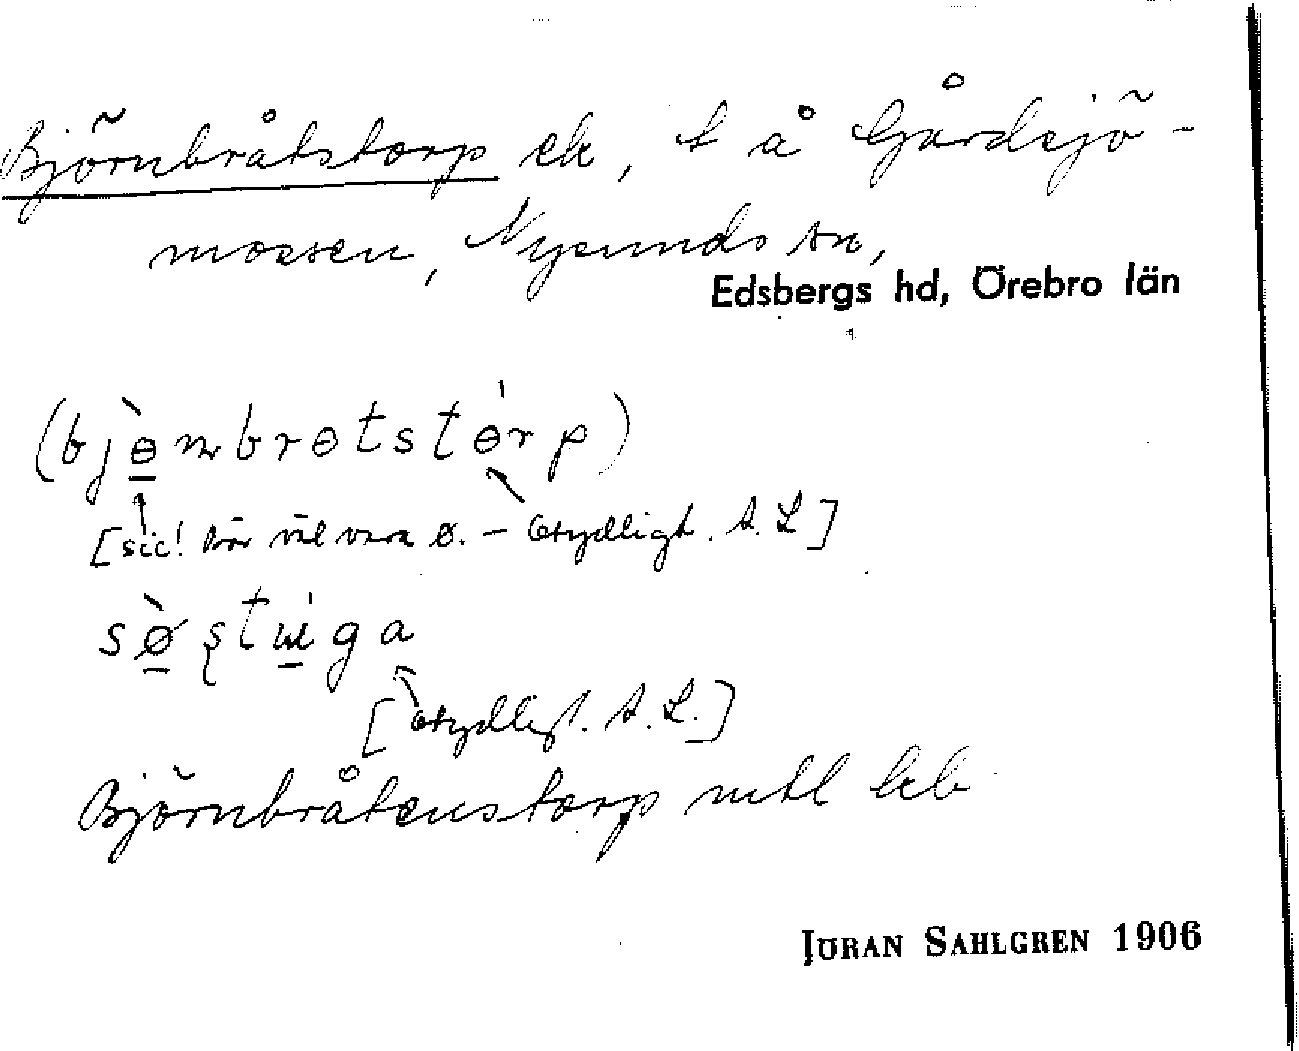 Björnbråtstorp ek, t å Gårdsjö-
mossen, Nysunds sn,
Edsbergs hd, Örebro län
(bjɵ̀mbrɵtstɵ́rp)
[sic! Bör väl vara ø. – Otydligt. A. L]
sø̀ʂtuga
[Otydligt. A. L.]
Björnbråtenstorp mtl kb
JÖRAN SAHLGREN 1906